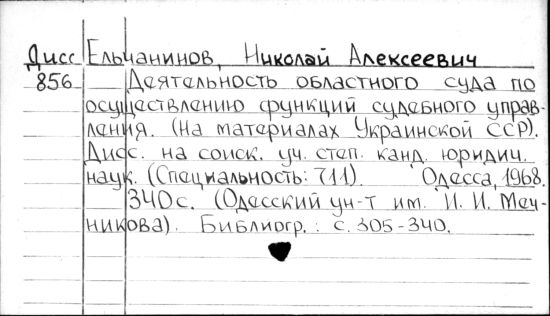 Дисс Ельчанинов, Николай Алексеевич
856 Деятельность областного суда по
осуществлению функций судебного управ-
ления. (На материалах Украинской ССР).
Дисс. на соиск. уч. степ. канд. юридич.
наук. (Специальность: 711). Одесса, 1968.
340 с. (Одесский ун-т им. И. И. Меч-
никова). Библиогр.: с. 305-340.